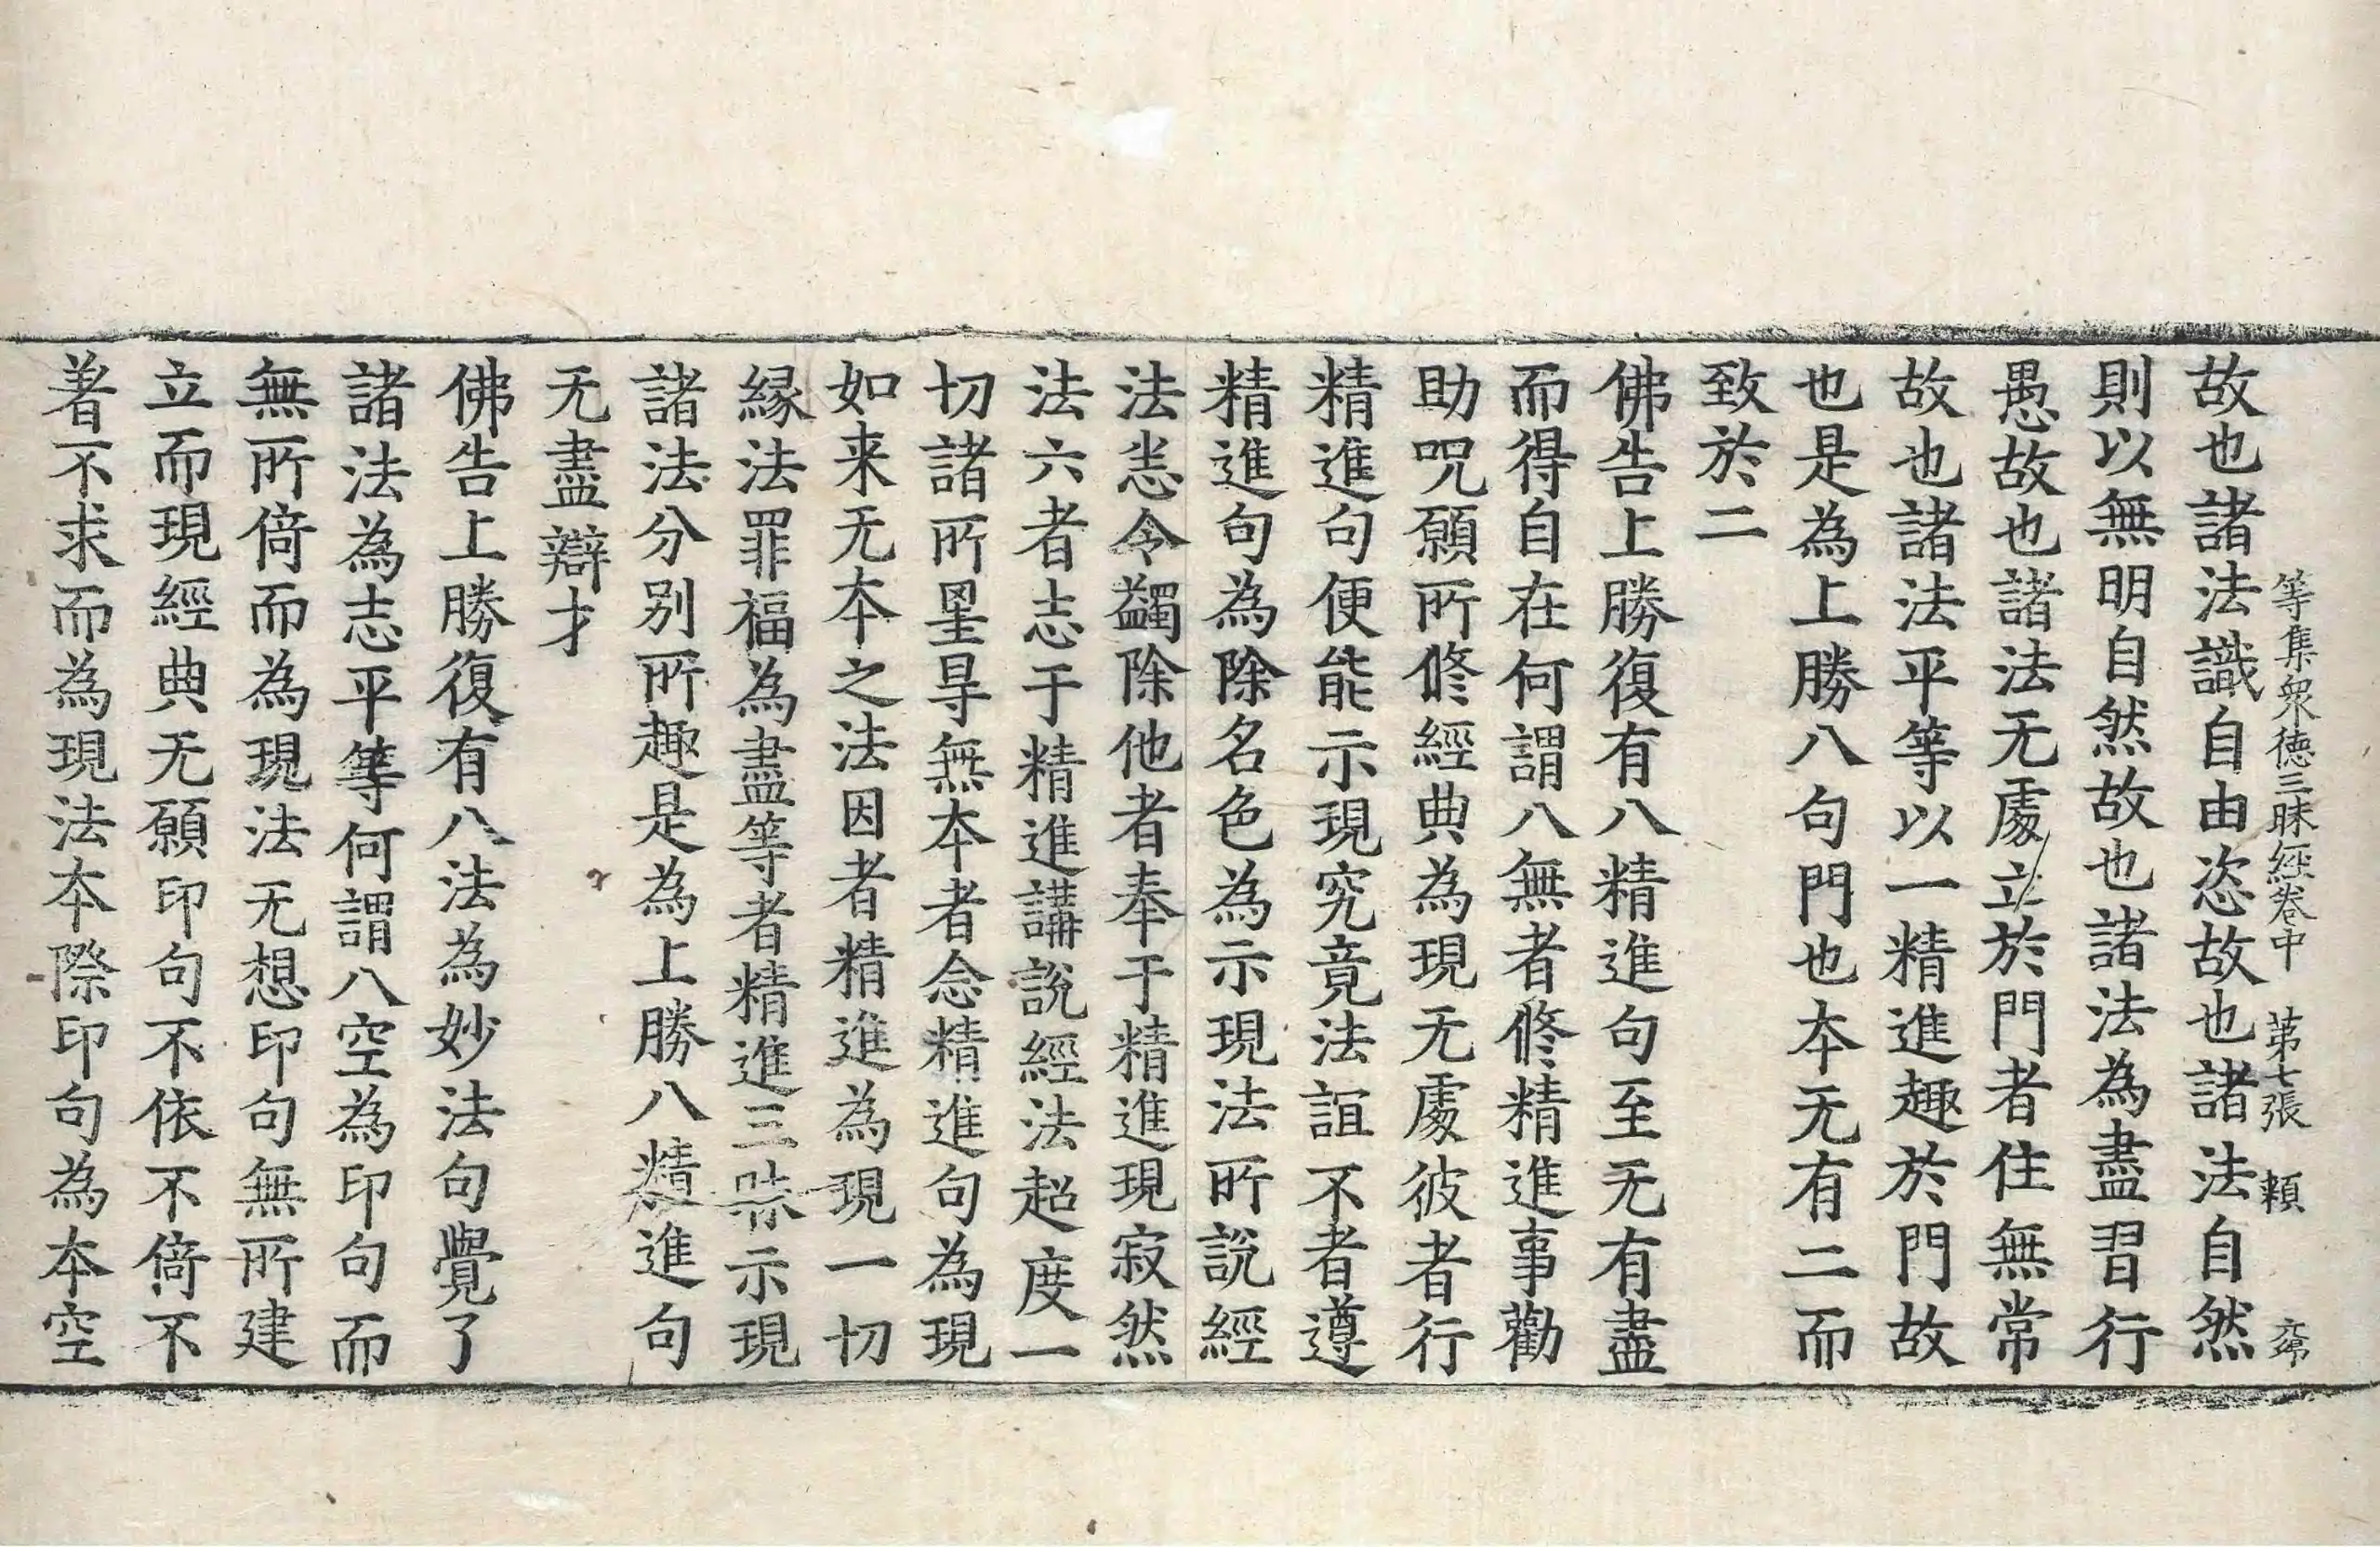 等集衆德三昧經卷中　第七張　賴
故也諸法識自由恣故也諸法自然
則以無明自然故也諸法為盡習行
愚故也諸法无處立於門者住無常
故也諸法平等以一精進趣於門故
也是為上勝八句門也本无有二而
致於二
佛告上勝復有八精進句至无有盡
而得自在何謂八無者修精進事勸
助呪願所修經典為現无處彼者行
精進句便能示現究竟法誼不者遵
精進句為除名色為示現法所說經
法恙令蠲除他者奉于精進現寂然
法六者志于精進講說經法超度一
切諸所罣㝵無本者念精進句為現
如来无本之法因者精進為現一切
緣法罪福為盡等者精進三昧示現
諸法分别所趣是為上勝八精進句
无盡辯才
佛告上勝復有八法為妙法句覺了
諸法為志平等何謂八空為印句而
無所倚而為現法无想印句無所建
立而現經典无願印句不依不倚不
著不求而為現法本際印句為本空